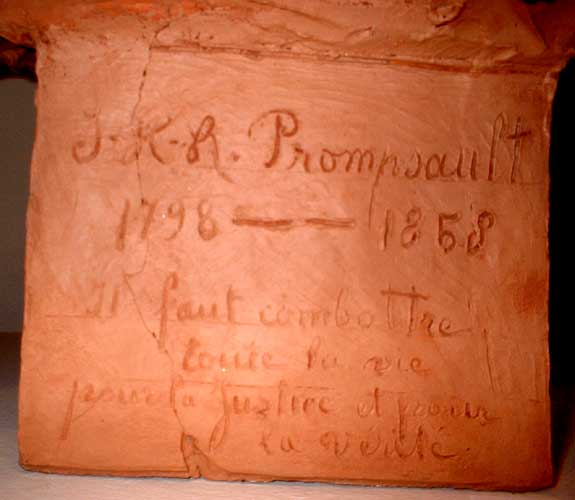 J-H-R. Prompsault
1798 — — 1858
Il faut combattre
toute la vie
pour la justice et pour
la vérité.